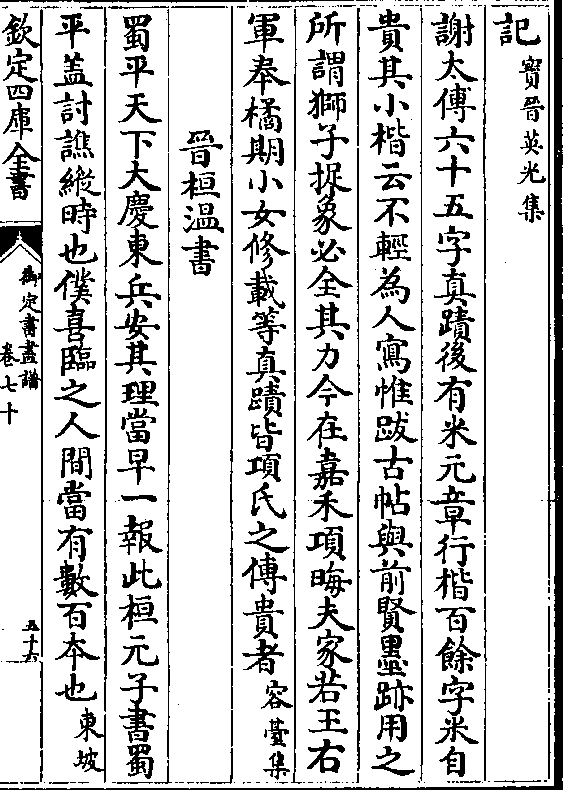 記寳晉英光集
謝太傅六十五字真蹟後有米元章行楷百餘字米自
貴其小楷云不輕為人寫惟跋古帖與前賢墨跡用之
所謂獅子捉象必全其力今在嘉禾項晦夫家若王右
軍奉橘期小女修載等真蹟皆項氏之傳貴者容臺集
晉桓温書
蜀平天下大慶東兵安其理當早一報此桓元子書蜀
平盖討譙縱時也僕喜臨之人間當有數百本也東坡
欽定四庫全書
御定書畫譜
卷七十
五十六